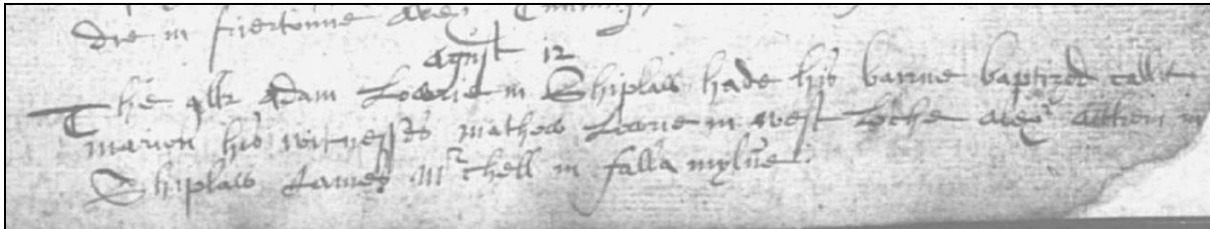 die in friertoune alexr
agust 12
The qlk adam Lowrie in Shiplaw hade his barne baptized callit
marion his witnesses mathow Lowrie in west Loche alexr in
Shiplaw James mitchell in falla mylne